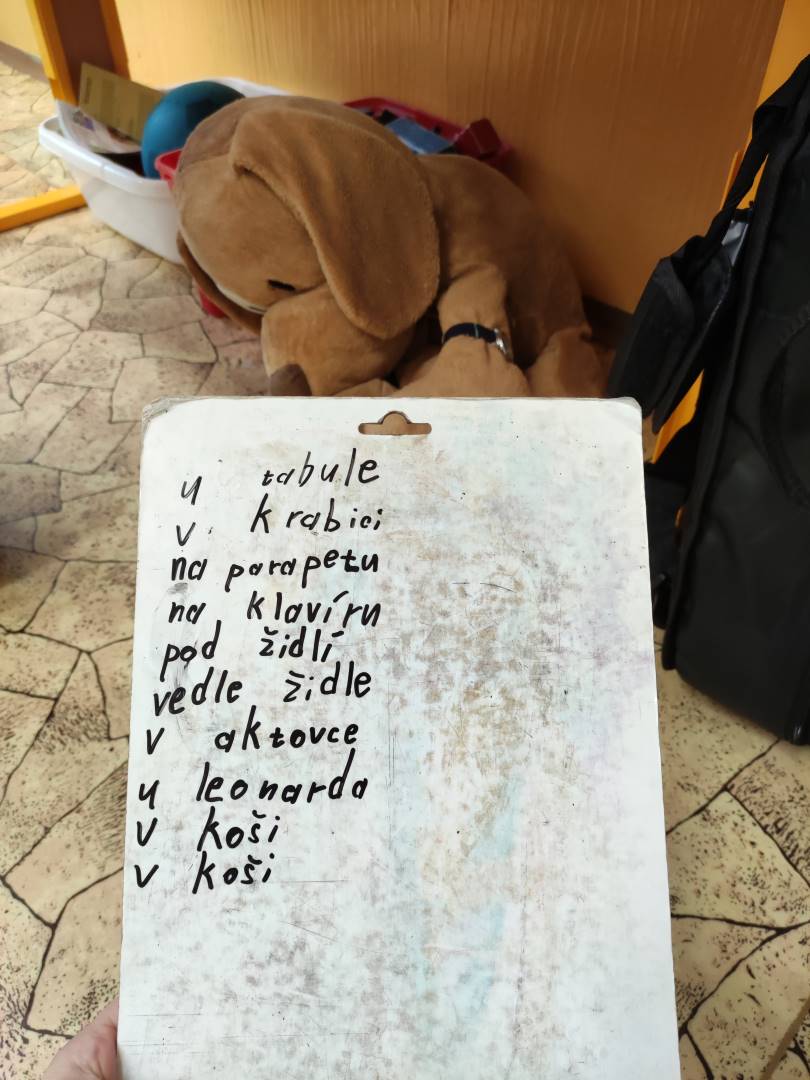 u tabule
v krabici
na parapetu
na klavíru
pod židlí
vedle židle
v aktovce
u leonarda
v koši
v koši